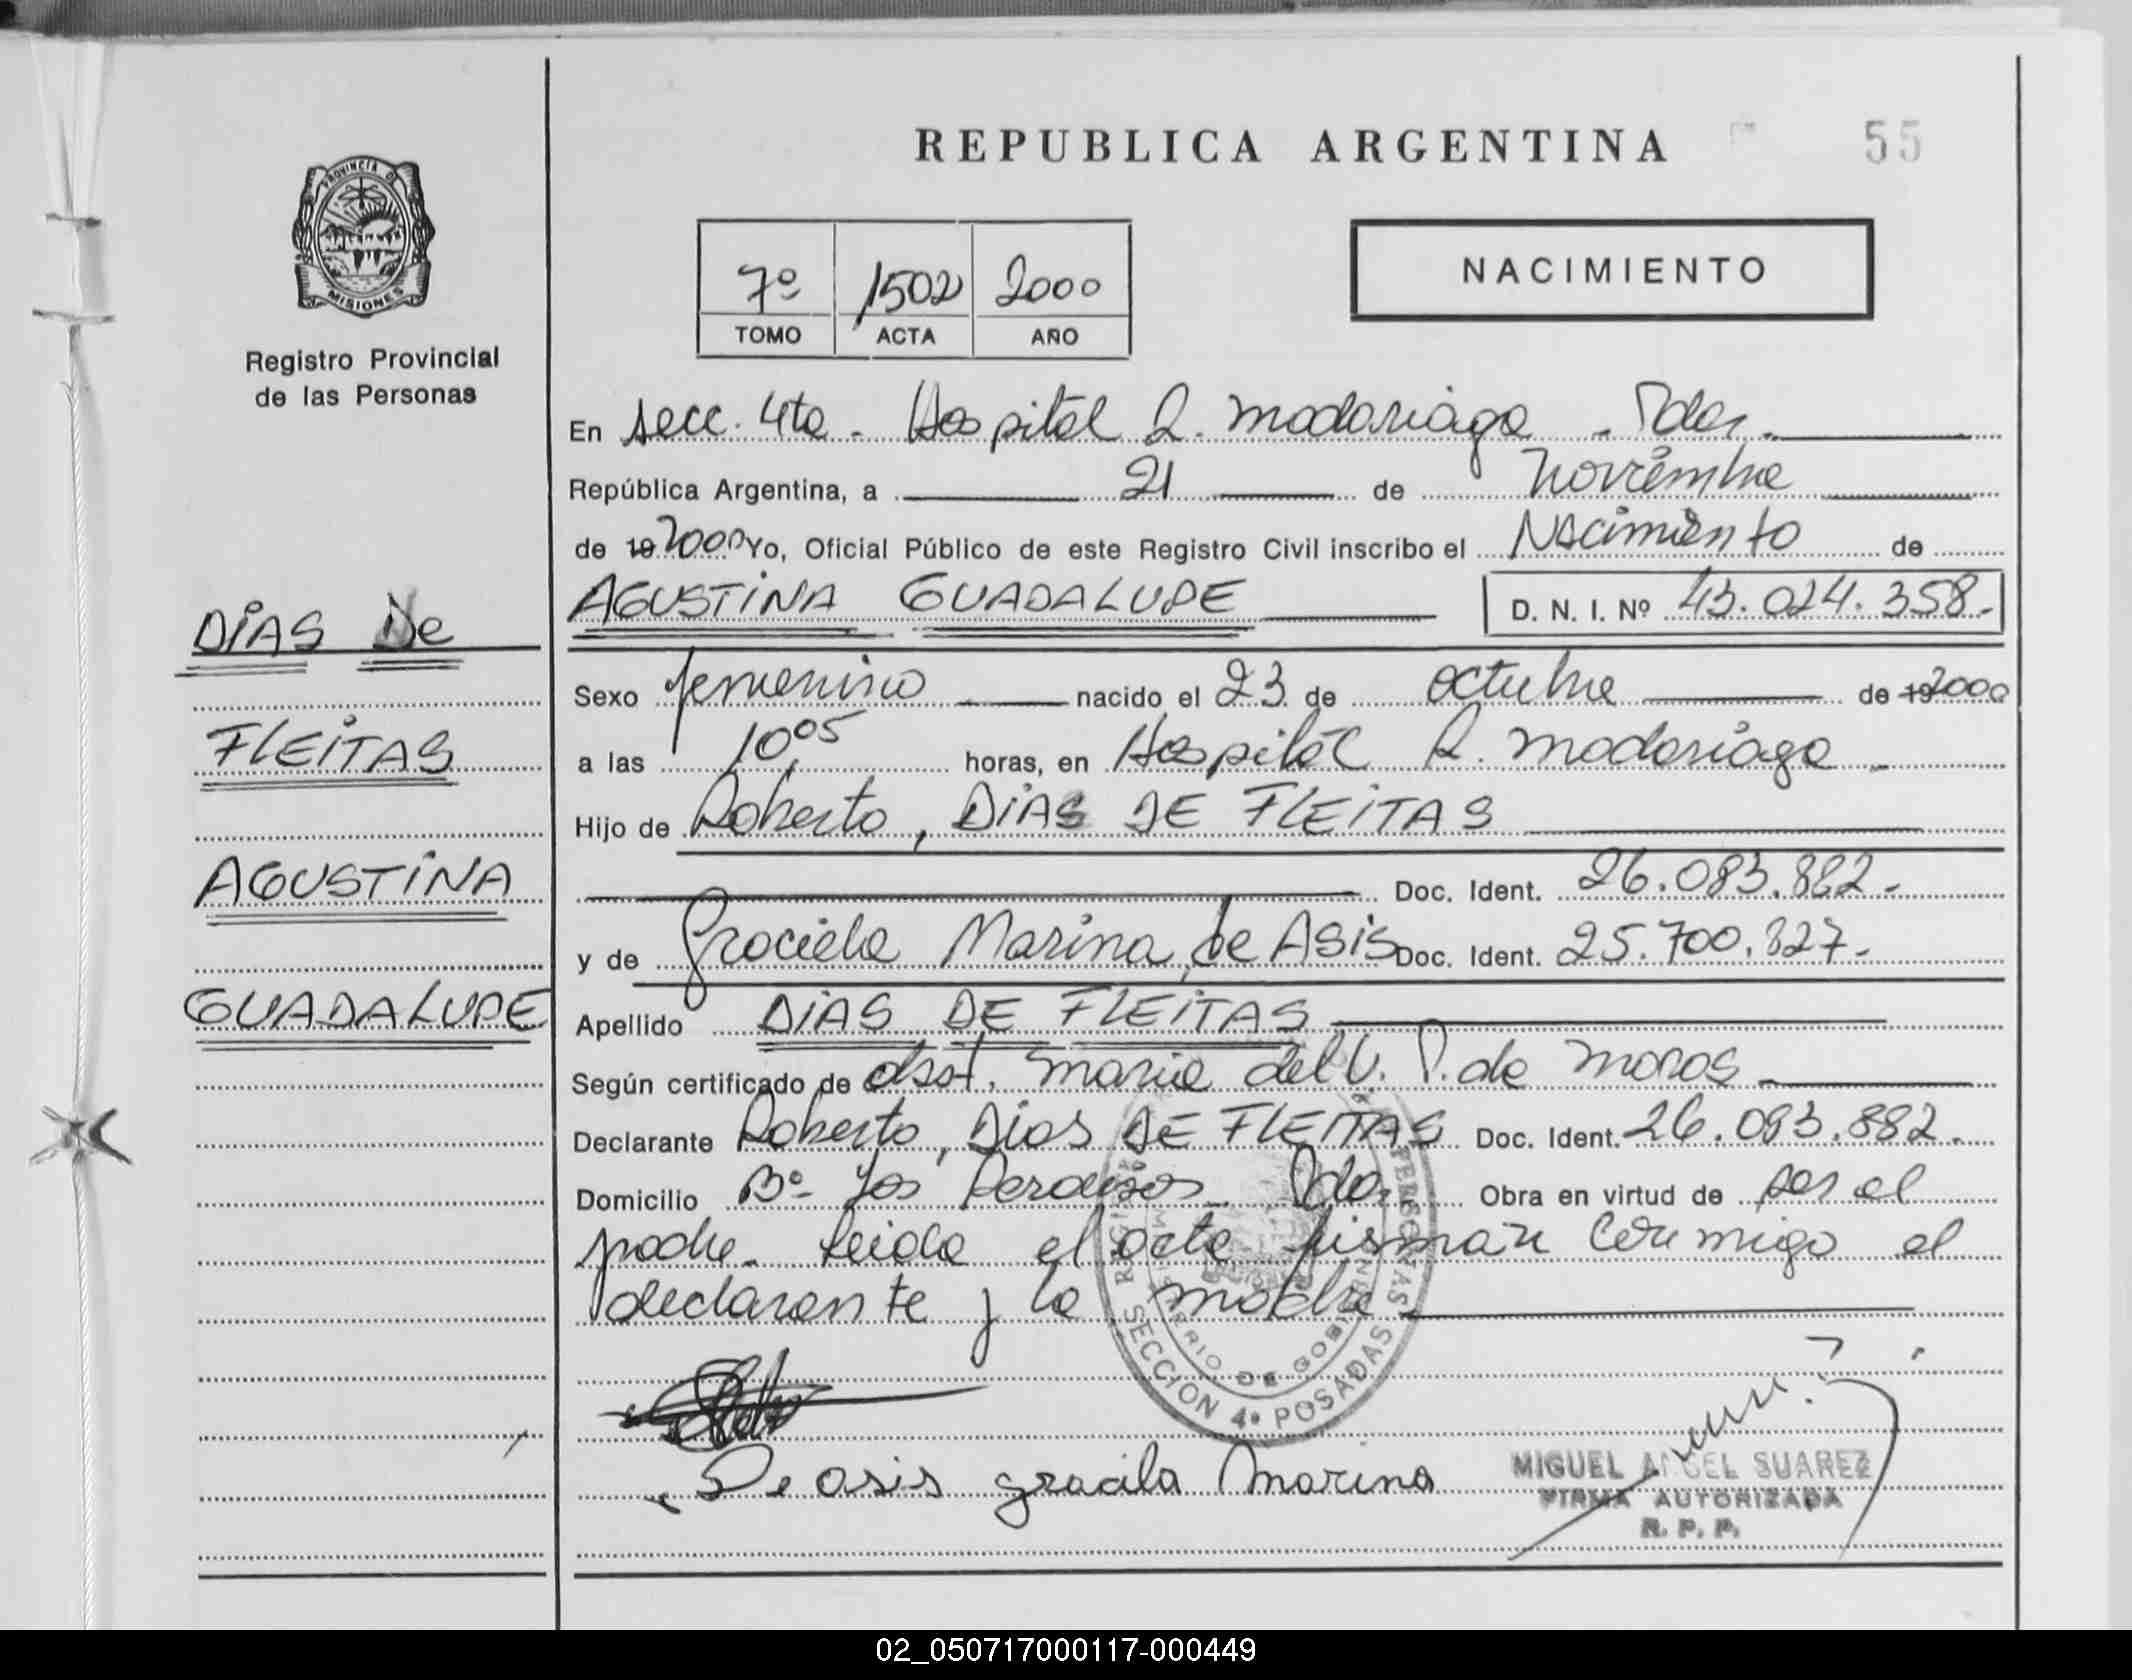 REPUBLICA ARGENTINA
55
PROVINCIA DE
MISIONES
Registro Provincial
de las Personas
7º 1502 2000
TOMO ACTA AÑO
NACIMIENTO
En secc. 4ta. Hospital R. Madariaga - Pdas.
República Argentina, a 21 de noviembre
de 19 2000 Yo, Oficial Público de este Registro Civil inscribo el Nacimiento de
AGUSTINA GUADALUPE D. N. I. Nº 43.024.358.-
DIAS De
FLEITAS
AGUSTINA
GUADALUPE
Sexo femenino nacido el 23 de octubre de 19 2000
a las 10,05 horas, en Hospital R. Madariaga -
Hijo de Roberto, DIAS DE FLEITAS
Doc. Ident. 26.083.882.-
y de Graciela Marina, de ASIS Doc. Ident. 25.700.827.-
Apellido DIAS DE FLEITAS
Según certificado de obst. Maria del V. P. de Moros
Declarante Roberto, Dias DE FLEITAS Doc. Ident. 26.083.882.-
Domicilio Bº Los Pdas. Obra en virtud de ser el
padre. Leida el acta firman conmigo el
declarante y la madre
MINISTERIO DE GOBIERNO
SECCION 4ª POSADAS
De asis gracila Marina
MIGUEL ANGEL SUAREZ
FIRMA AUTORIZADA
R. P. P.
02_050717000117-000449